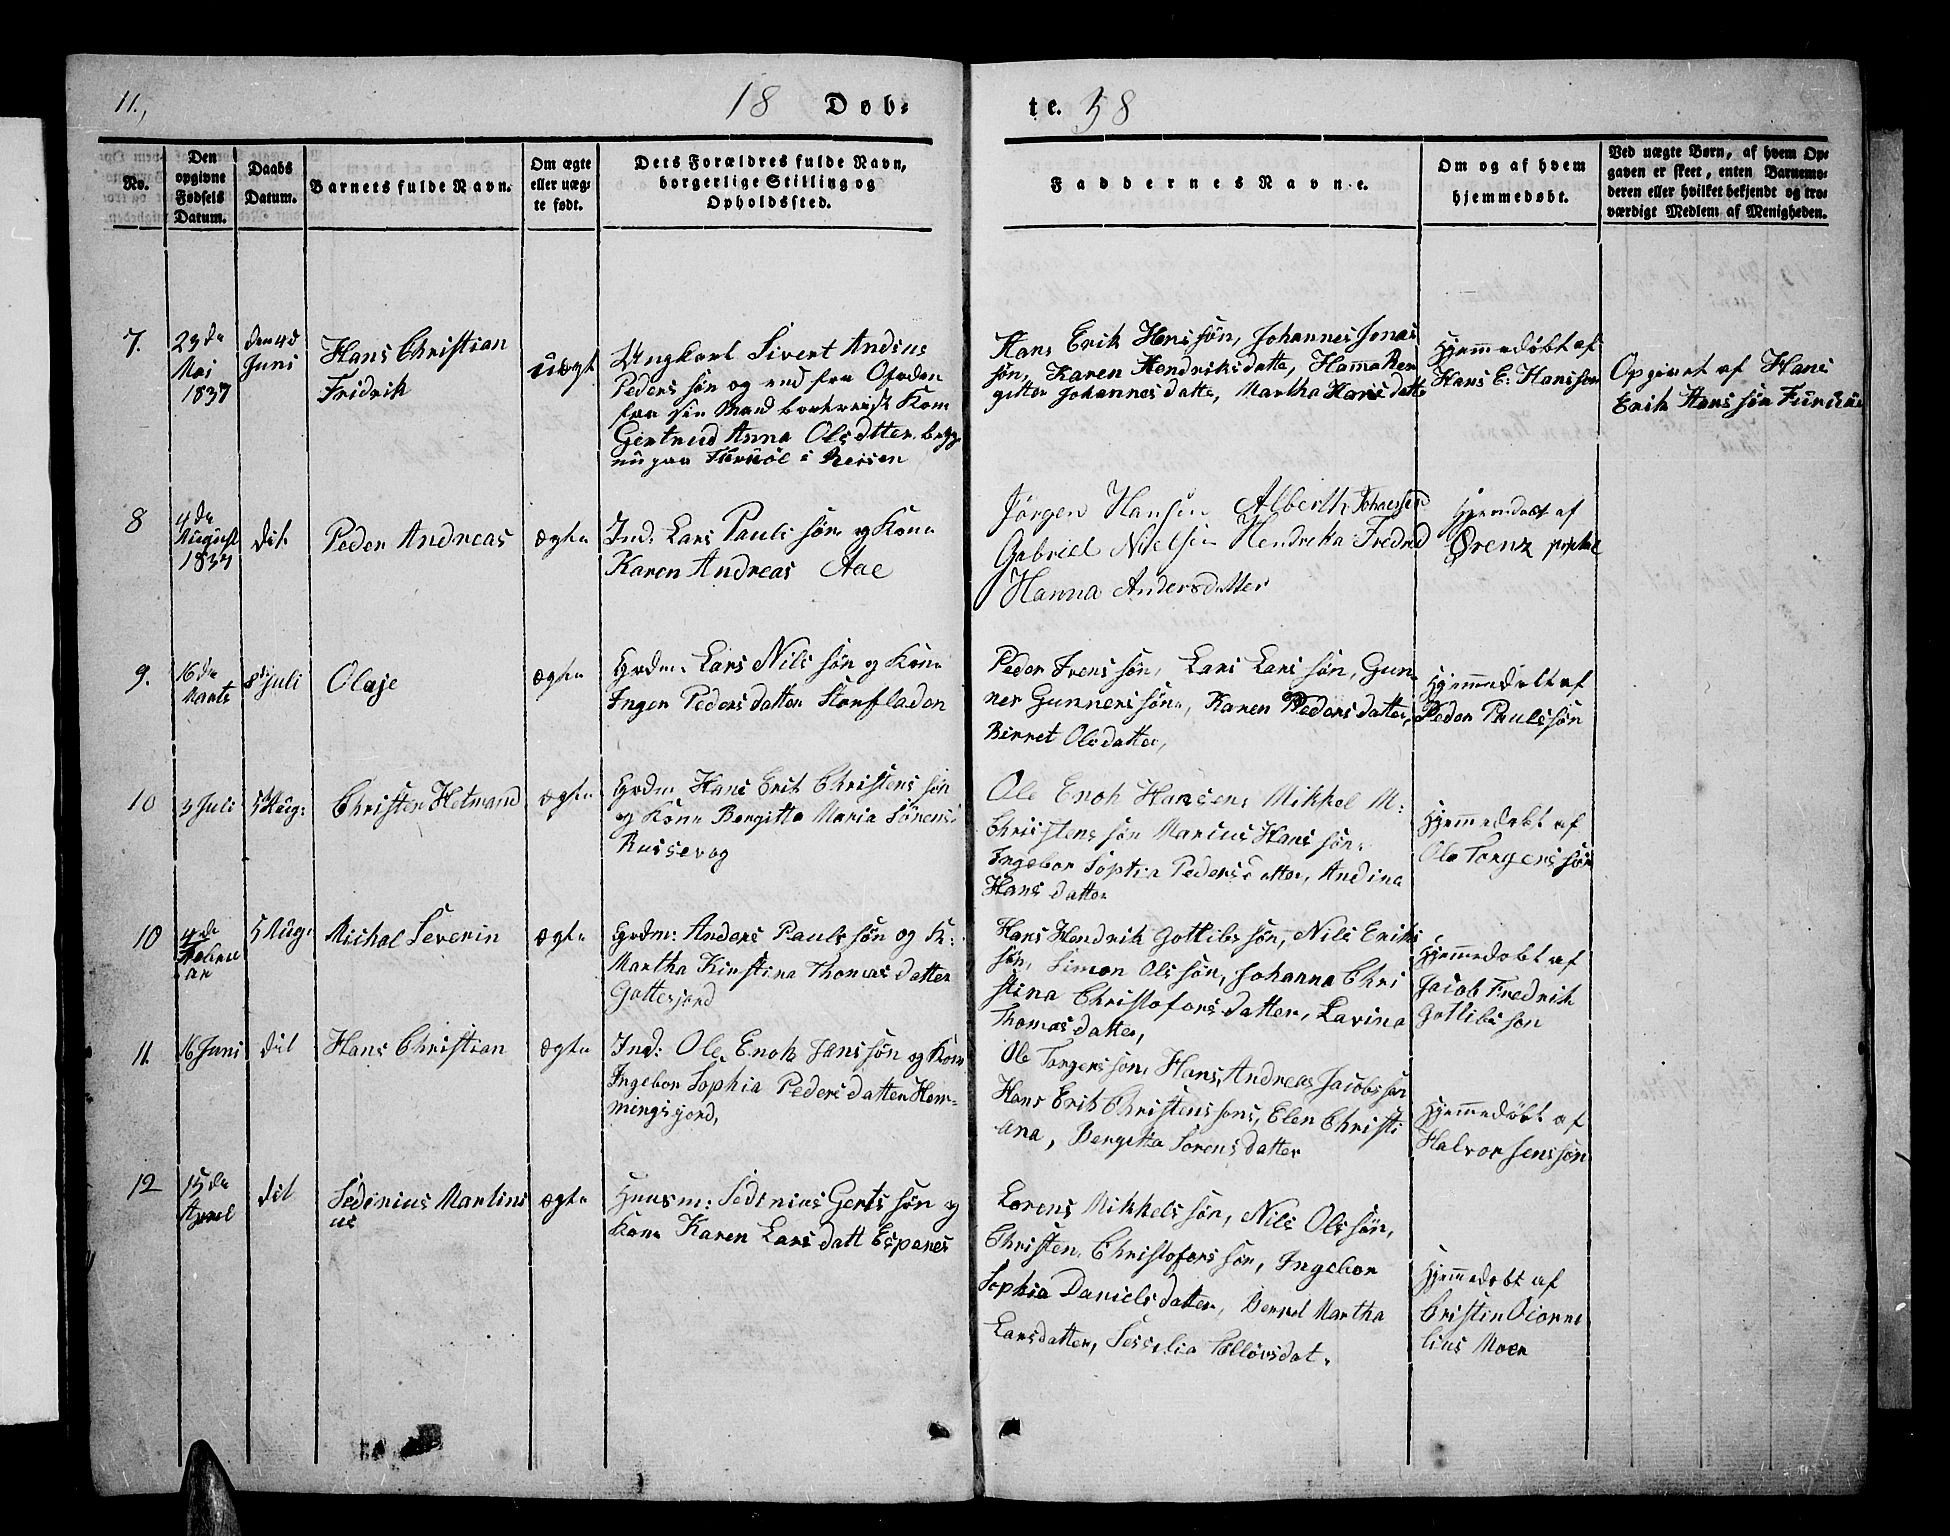 11.,
18 Døb-
te. 58
No.
Den opgivne Fødsels Datum.
Daabs Datum.
Barnets fulde Navn.
Om ægte eller uæg-te født.
Dets Forældres fulde Navn, borgerlige Stilling og Opholdssted.
Faddernes Navne.
Om og af hvem hjemmedøbt.
Ved uægte Børn, af hvem Op-gaven er skeet, enten Barnemo-deren eller hvilket bekjendt og tro-værdigt Medlem af Menigheden.
7.
23de
Mai
1837
den 4d
Juni
Hans Christian
Fridrik
uægt
Ungkarl Sivert Andreas
Peders søn og
fra sin Mand Kone
Gertrud Anna Olsdatter
nu paa i Reisen
Hans Erik Hanssøn, Johannes Jonas
søn, Karen Hendriksdatte, Hanna Ber
gitte Johannesdatte, Martha Hansdatte
Hjemmedøbt af
Hans E: Hanssøn
Opgivet af Hans
Erik Hanssøn
8
4de
August
1837
dit.
Peder Andreas
ægte
Ind: Lars Pauls søn og Kone
Karen Andreas Aae
Jørgen Hansen Alberth
Gabriel Nielsen Hendrika Fredrd
Hanna Andersdatter
Hjemdøbt af
9.
16de
Marts
8d Juli
Olaje
ægte
Grdm. Lars Nils søn og Kone
Inger Peders datter Storsladen
Peder Ivers søn, Lars Lars søn, Gun-
ner Gunners søn, Karen Pedersdatter,
Berret Olsdatter,
Hjemmedøbt af
Peder Paulssøn
10
3 Juli
5 Aug:
Christen Hetmand
ægte
Grdm Hans Erik Christens søn
og Kone Bergitte Maria Sørens:
Russevog
Ole Enoh Hansens Mikkel M:
Christens søn Marcus Hans søn,
Ingebor Sophia Pedersdatter, Andina
Hans datter
Hjemmedøbt af
Ole Torgers søn
10
4de
Februar
5 Aug:
Michal Severin
ægte
Grdm: Anders Pauls søn og K:
Martha Kirstina Thomasdatter
Gottesjord
Hans Hendrik Gottlibs søn, Nils Eriks
søn, Simon Ols søn, Johanna Chri
stina Christofors datter, Lavina
Thomasdatter,
Hjemmedøbt af
Jacob Fredrik
Gotlibs søn
11.
16 Juni
dit
Hans Christian
ægte
Ind: Ole Enok Jans søn og Kone
Ingebor Sophia Peders datter Hem-
mingsjord,
Ole Torgers søn, Hans Andreas Jacobs søn
Hans Erik Christens søns, Elen Christi
ana, Bergitta Sorensdatter
Hjemmedøbt af
Halvor Jenssøn
12
15de
April
dit
Sedinius Martini
us
ægte
Huusm: Sedinius Gerts søn og
Kone Karen Lars datt Espanes
Lorens Mikkels søn, Nils Ols søn,
Christen Christofors søn, Ingebor
Sophia Daniels datter, Berret Martha
Larsdatter,
Hjemmedøbt af
Moen